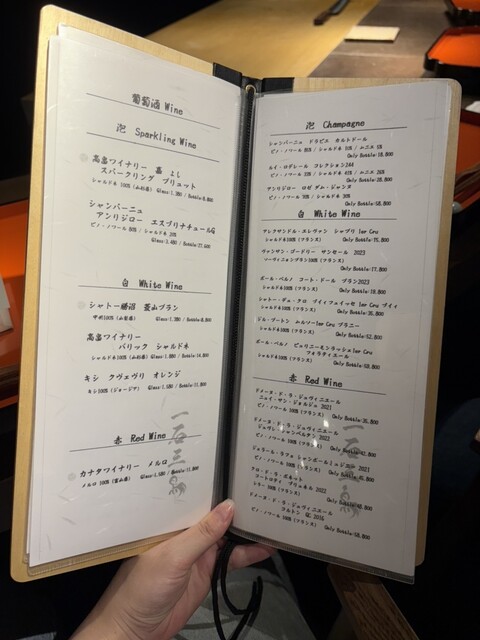 葡萄酒 Wine
泡 Sparkling Wine
高畠ワイナリー 嘉 よし
スパークリング ブリュット
シャルドネ 100% (山形県) Glass:1,380 / Bottle:8,800
シャンパーニュ
アンリジロー エスプリナチュールG
ピノ・ノワール 80% / シャルドネ 20%
Glass:3,480 / Bottle:27,600
白 White Wine
シャトー勝沼 菱山ブラン
甲州100% (山梨県) Glass:1,280 / Bottle:8,800
高畠ワイナリー
バリック シャルドネ
シャルドネ100% (山形県) Glass:1,880 / Bottle:14,800
キシ クヴェヴリ オレンジ
キシ100% (ジョージア) Glass:1,580 / Bottle:11,800
赤 Red Wine
カナタワイナリー メルロ
メルロ 100% (富山県) Glass:1,580 / Bottle:11,800
泡 Champagne
シャンパーニュ ドラピエ カルトドール
Only Bottle:18,800
ルイ・ロデレール コレクション244
Only Bottle:28,800
アンリジロー ロゼ ダム・ジャンヌ
Only Bottle:58,800
白 White Wine
アレクサンドル・エレヴァン シャブリ 1er Cru
シャルドネ100%(フランス) Only Bottle:75,800
ヴァンサン・ゴードリー サンセール 2023
ソーヴィニョンブラン100%(フランス)
Only Bottle:17,800
ポール・ペルノ コート・ドール ブラン2023
シャルドネ100%(フランス) Only Bottle:19,800
シャルドネ100%(フランス) Only Bottle:35,800
シャルドネ100%(フランス) Only Bottle:52,800
ポール・ペルノ ピュリニーモンラッシェ1er Cru
フォラティエール
シャルドネ100%(フランス) Only Bottle:59,800
赤 Red Wine
ドメーヌ・ド・ラ・ジュヴィニエール
ニュイ・サン・ジョルジュ 2021
ピノ・ノワール 100%(フランス) Only Bottle:35,800
ドメーヌ・ド・ラ・ジュヴィニエール
ジュヴレ・シャンベルタン 2022
ピノ・ノワール 100%(フランス) Only Bottle:42,800
ジェラール・ラフェ シャンボールミュジニー 2021
ピノ・ノワール 100%(フランス)
2022
ドメーヌ・ド・ラ・ジュヴィニエール
コルトン GC 2015
ピノ・ノワール 100%(フランス) Only Bottle:58,800